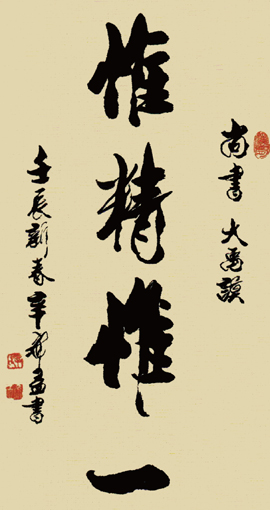 尚書 大禹謨
惟精惟一
壬辰新春辛